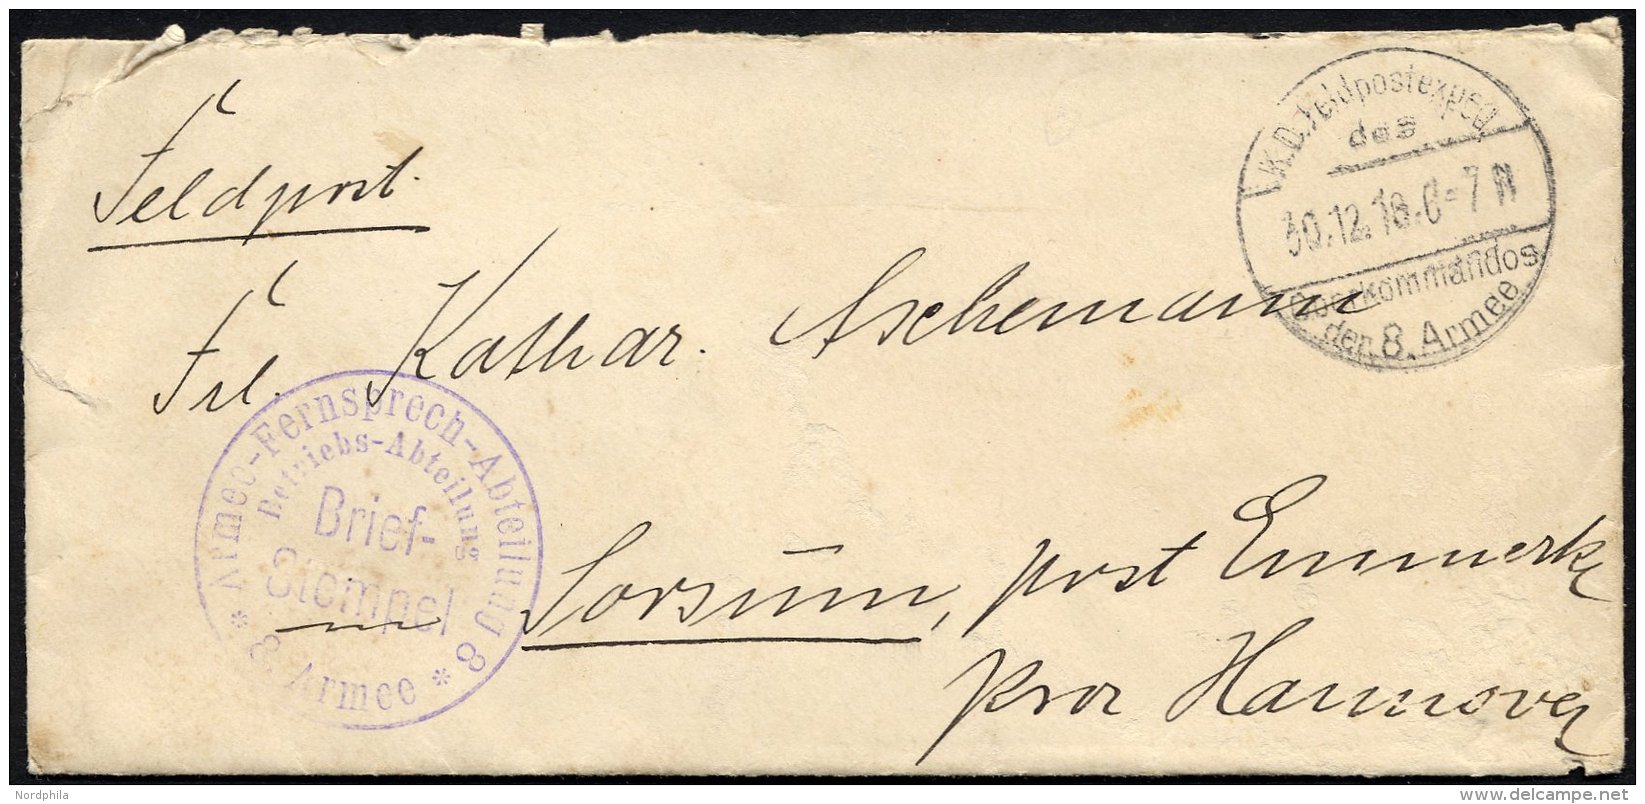 Feldpost.
K.D. Feldpostexped
des
30.12.16. 6-7 N
Oberkommandos
der 8. Armee
Frl. Kathar. Aschemann
Armee-Fernsprech-Abteilung 8
Betriebs-Abteilung
Brief-
Stempel
* 8. Armee *
in Sorsum, post Emmerke
Prov Hannover
Nordphila
www.delcampe.net